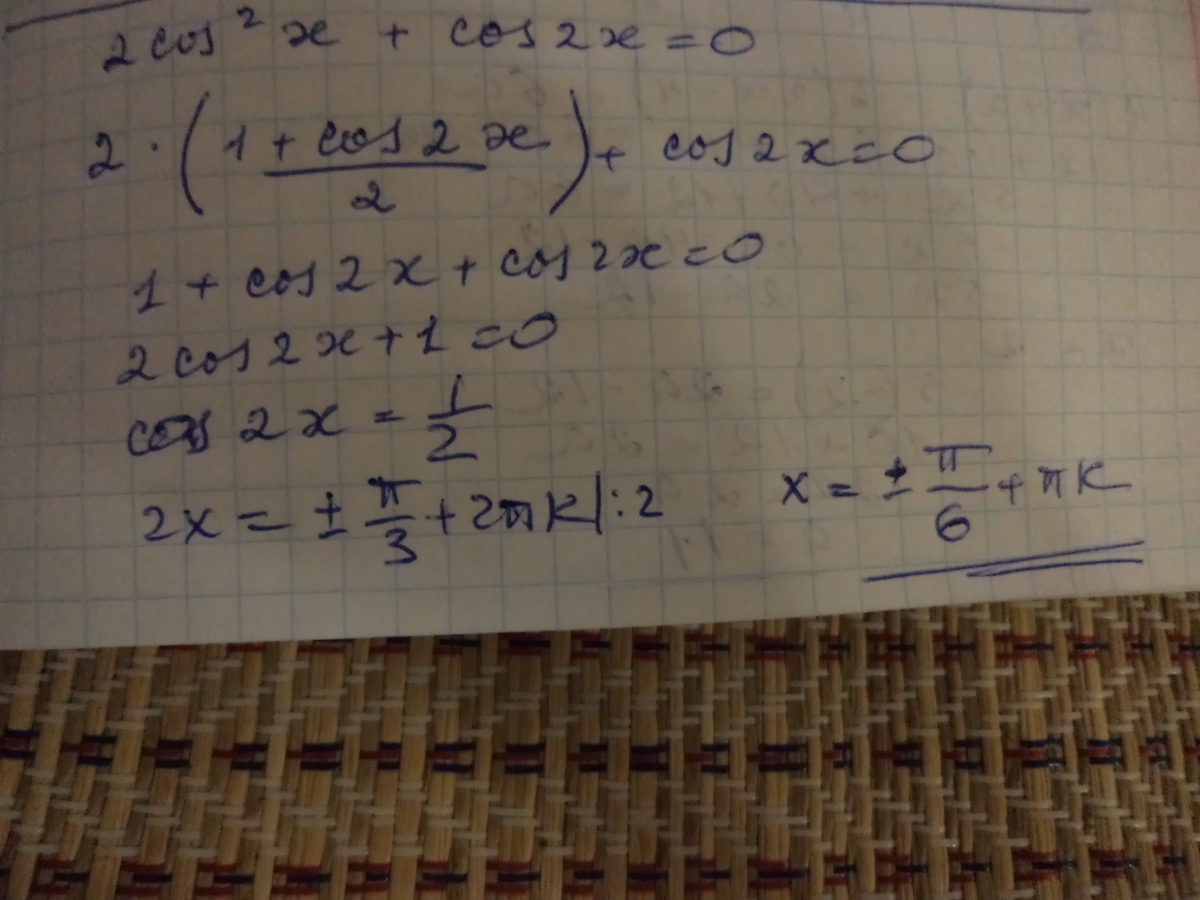 2 cos² x + cos 2x = 0
2 · (1 + cos 2x / 2) + cos 2x = 0
1 + cos 2x + cos 2x = 0
2 cos 2x + 1 = 0
cos 2x = 1/2
2x = ± π/3 + 2πk | : 2    x = ± π/6 + πk